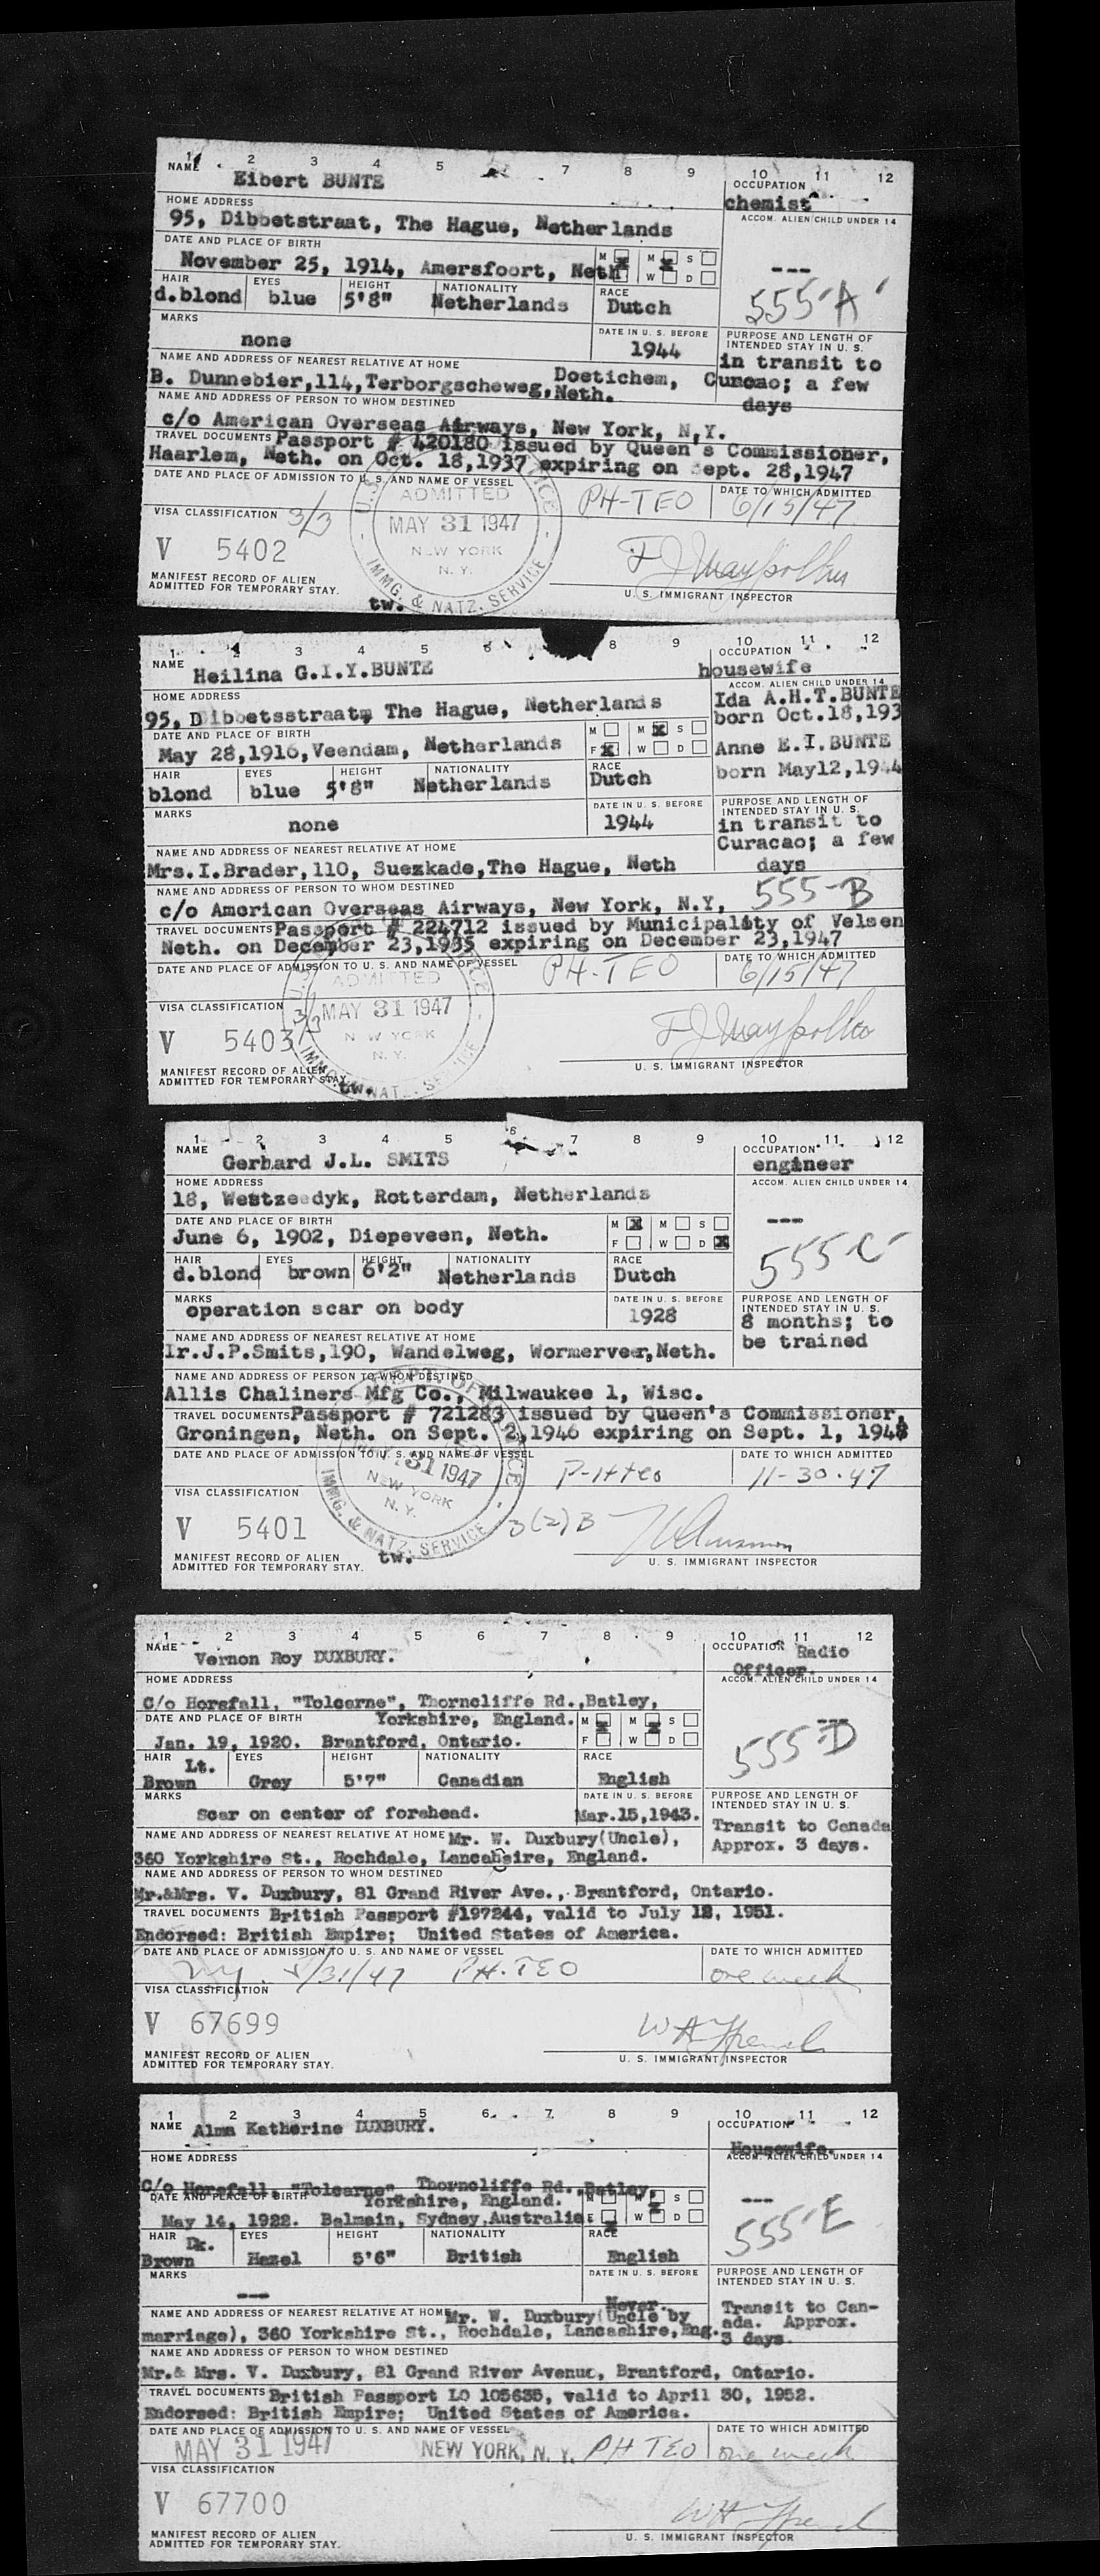 1 2 3 4 5 7 8 9 10 11 12
NAME Eibert BUNTE OCCUPATION chemist
HOME ADDRESS ACCOM. ALIEN CHILD UNDER 14
95, Dibbetstraat, The Hague, Netherlands
DATE AND PLACE OF BIRTH M X M X S
November 25, 1914, Amersfoort, Neth W D ---
HAIR EYES HEIGHT NATIONALITY RACE 555-A
d.blond blue 5'8" Netherlands Dutch
MARKS DATE IN U. S. BEFORE PURPOSE AND LENGTH OF INTENDED STAY IN U. S.
none 1944 in transit to
NAME AND ADDRESS OF NEAREST RELATIVE AT HOME
B. Dunnebier,114,Terborgscheweg, Doetichem, Neth. Curacao; a few days
NAME AND ADDRESS OF PERSON TO WHOM DESTINED
c/o American Overseas Airways, New York, N.Y.
TRAVEL DOCUMENTS Passport # 420180 issued by Queen's Commissioner,
Haarlem, Neth. on Oct. 18,1937 expiring on Sept. 28,1947
DATE AND PLACE OF ADMISSION TO U. S. AND NAME OF VESSEL DATE TO WHICH ADMITTED
ADMITTED PH-TEO 6/15/47
VISA CLASSIFICATION 3/3 MAY 31 1947
V 5402 NEW YORK N. Y.
IMMG. & NATZ. SERVICE
MANIFEST RECORD OF ALIEN U. S. IMMIGRANT INSPECTOR
ADMITTED FOR TEMPORARY STAY.
tw.
1 2 3 4 5 6 8 9 10 11 12
NAME Heilina G.I.Y.BUNTE OCCUPATION housewife
HOME ADDRESS ACCOM. ALIEN CHILD UNDER 14
95, Dibbetsstraat, The Hague, Netherlands Ida A.H.T.BUNTE
born Oct.18,193
DATE AND PLACE OF BIRTH M M X S
May 28,1916,Veendam, Netherlands F X W D Anne E.I.BUNTE
HAIR EYES HEIGHT NATIONALITY RACE born May12,1944
blond blue 5'8" Netherlands Dutch
MARKS DATE IN U. S. BEFORE PURPOSE AND LENGTH OF INTENDED STAY IN U. S.
none 1944 in transit to
Curacao; a few
NAME AND ADDRESS OF NEAREST RELATIVE AT HOME days
Mrs.I.Brader,110, Suezkade,The Hague, Neth
NAME AND ADDRESS OF PERSON TO WHOM DESTINED 555-B
c/o American Overseas Airways, New York, N.Y,
TRAVEL DOCUMENTS Passport # 224712 issued by Municipality of Velsen
Neth. on December 23,1935 expiring on December 23,1947
DATE AND PLACE OF ADMISSION TO U. S. AND NAME OF VESSEL DATE TO WHICH ADMITTED
ADMITTED PH-TEO 6/15/47
VISA CLASSIFICATION 3/3 MAY 31 1947
V 5403 NEW YORK N. Y.
MANIFEST RECORD OF ALIEN U. S. IMMIGRANT INSPECTOR
ADMITTED FOR TEMPORARY STAY.
tw.
1 2 3 4 5 6 7 8 9 10 11 12
NAME Gerhard J.L. SMITS OCCUPATION engineer
HOME ADDRESS ACCOM. ALIEN CHILD UNDER 14
18, Westzeedyk, Rotterdam, Netherlands
DATE AND PLACE OF BIRTH M X M S ---
June 6, 1902, Diepeveen, Neth. F W D X
HAIR EYES HEIGHT NATIONALITY RACE 555-C
d.blond brown 6'2" Netherlands Dutch
MARKS DATE IN U. S. BEFORE PURPOSE AND LENGTH OF INTENDED STAY IN U. S.
operation scar on body 1928 8 months; to
NAME AND ADDRESS OF NEAREST RELATIVE AT HOME be trained
Ir.J.P.Smits,190, Wandelweg, Wormerveer,Neth.
NAME AND ADDRESS OF PERSON TO WHOM DESTINED
Allis Chaliners Mfg Co., Milwaukee 1, Wisc.
TRAVEL DOCUMENTS Passport # 721283 issued by Queen's Commissioner,
Groningen, Neth. on Sept. 2,1946 expiring on Sept. 1, 1948
DATE AND PLACE OF ADMISSION TO U. S. AND NAME OF VESSEL DATE TO WHICH ADMITTED
31 1947 P-H teo 11-30-47
VISA CLASSIFICATION NEW YORK N. Y.
V 5401 3(2)B
IMMG. & NATZ. SERVICE
MANIFEST RECORD OF ALIEN U. S. IMMIGRANT INSPECTOR
ADMITTED FOR TEMPORARY STAY.
tw.
1 2 3 4 5 6 7 8 9 10 11 12
NAME Vernon Roy DUXBURY. OCCUPATION Radio Officer.
HOME ADDRESS ACCOM. ALIEN CHILD UNDER 14
C/o Horsfall, "Tolcarne", Thorncliffe Rd.,Batley,
DATE AND PLACE OF BIRTH Yorkshire, England. M X M X S ---
Jan. 19, 1920. Brantford, Ontario. F W D 555-D
HAIR EYES HEIGHT NATIONALITY RACE
Lt. Brown Grey 5'7" Canadian English
MARKS DATE IN U. S. BEFORE PURPOSE AND LENGTH OF INTENDED STAY IN U. S.
Scar on center of forehead. Mar.15,1943. Transit to Canada
NAME AND ADDRESS OF NEAREST RELATIVE AT HOME Mr. W. Duxbury(Uncle), Approx. 3 days.
360 Yorkshire St., Rochdale, Lancashire, England.
NAME AND ADDRESS OF PERSON TO WHOM DESTINED
Mr.&Mrs. V. Duxbury, 81 Grand River Ave., Brantford, Ontario.
TRAVEL DOCUMENTS British Passport #197244, valid to July 12, 1951.
Endorsed: British Empire; United States of America.
DATE AND PLACE OF ADMISSION TO U. S. AND NAME OF VESSEL DATE TO WHICH ADMITTED
NY. 5/31/47 PH-TEO one week
VISA CLASSIFICATION
V 67699 W H French
MANIFEST RECORD OF ALIEN U. S. IMMIGRANT INSPECTOR
ADMITTED FOR TEMPORARY STAY.
1 2 3 4 5 6 7 8 9 10 11 12
NAME Alma Katherine DUXBURY. OCCUPATION Housewife.
HOME ADDRESS ACCOM. ALIEN CHILD UNDER 14
C/o Horsfall, "Tolcarne" Thorncliffe Rd.,Batley,
DATE AND PLACE OF BIRTH Yorkshire, England. M M X S ---
May 14, 1922. Balmain, Sydney,Australia. F X W D 555-E
HAIR EYES HEIGHT NATIONALITY RACE
Dk. Brown Hazel 5'6" British English
MARKS DATE IN U. S. BEFORE PURPOSE AND LENGTH OF INTENDED STAY IN U. S.
--- Never. Transit to Can-
NAME AND ADDRESS OF NEAREST RELATIVE AT HOME Mr. W. Duxbury(Uncle by ada. Approx.
marriage), 360 Yorkshire St., Rochdale, Lancashire,Eng. 3 days.
NAME AND ADDRESS OF PERSON TO WHOM DESTINED
Mr.& Mrs. V. Duxbury, 81 Grand River Avenue, Brantford, Ontario.
TRAVEL DOCUMENTS British Passport LO 105635, valid to April 30, 1952.
Endorsed: British Empire; United States of America.
DATE AND PLACE OF ADMISSION TO U. S. AND NAME OF VESSEL DATE TO WHICH ADMITTED
MAY 31 1947 NEW YORK, N. Y. PH TEO one week
VISA CLASSIFICATION
V 67700 W H French
MANIFEST RECORD OF ALIEN U. S. IMMIGRANT INSPECTOR
ADMITTED FOR TEMPORARY STAY.